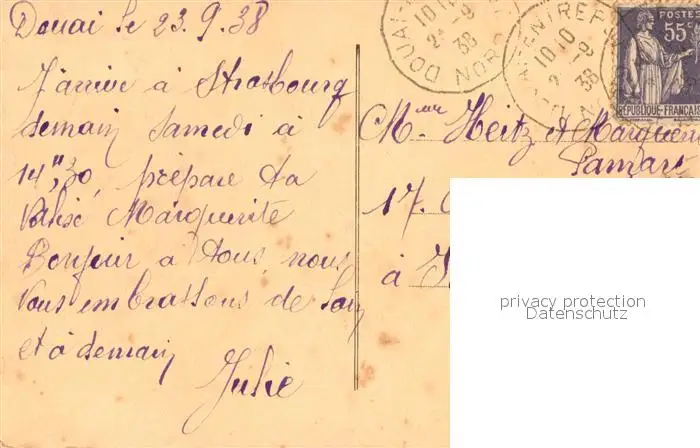 Douai le 23.9.38
J'arrive à Strasbourg
demain Samedi à
14"30, prépare ta
Valise Marguerite
Bonjour a tous, nous
vous embrassons de loin
et à demain
Julie
DOUAI
10 10
2 -9
38
NORD
10 10
2 -9
38
POSTES
55c
REPUBLIQUE-FRANÇAISE
Heitz et
17.
à
privacy protection
Datenschutz